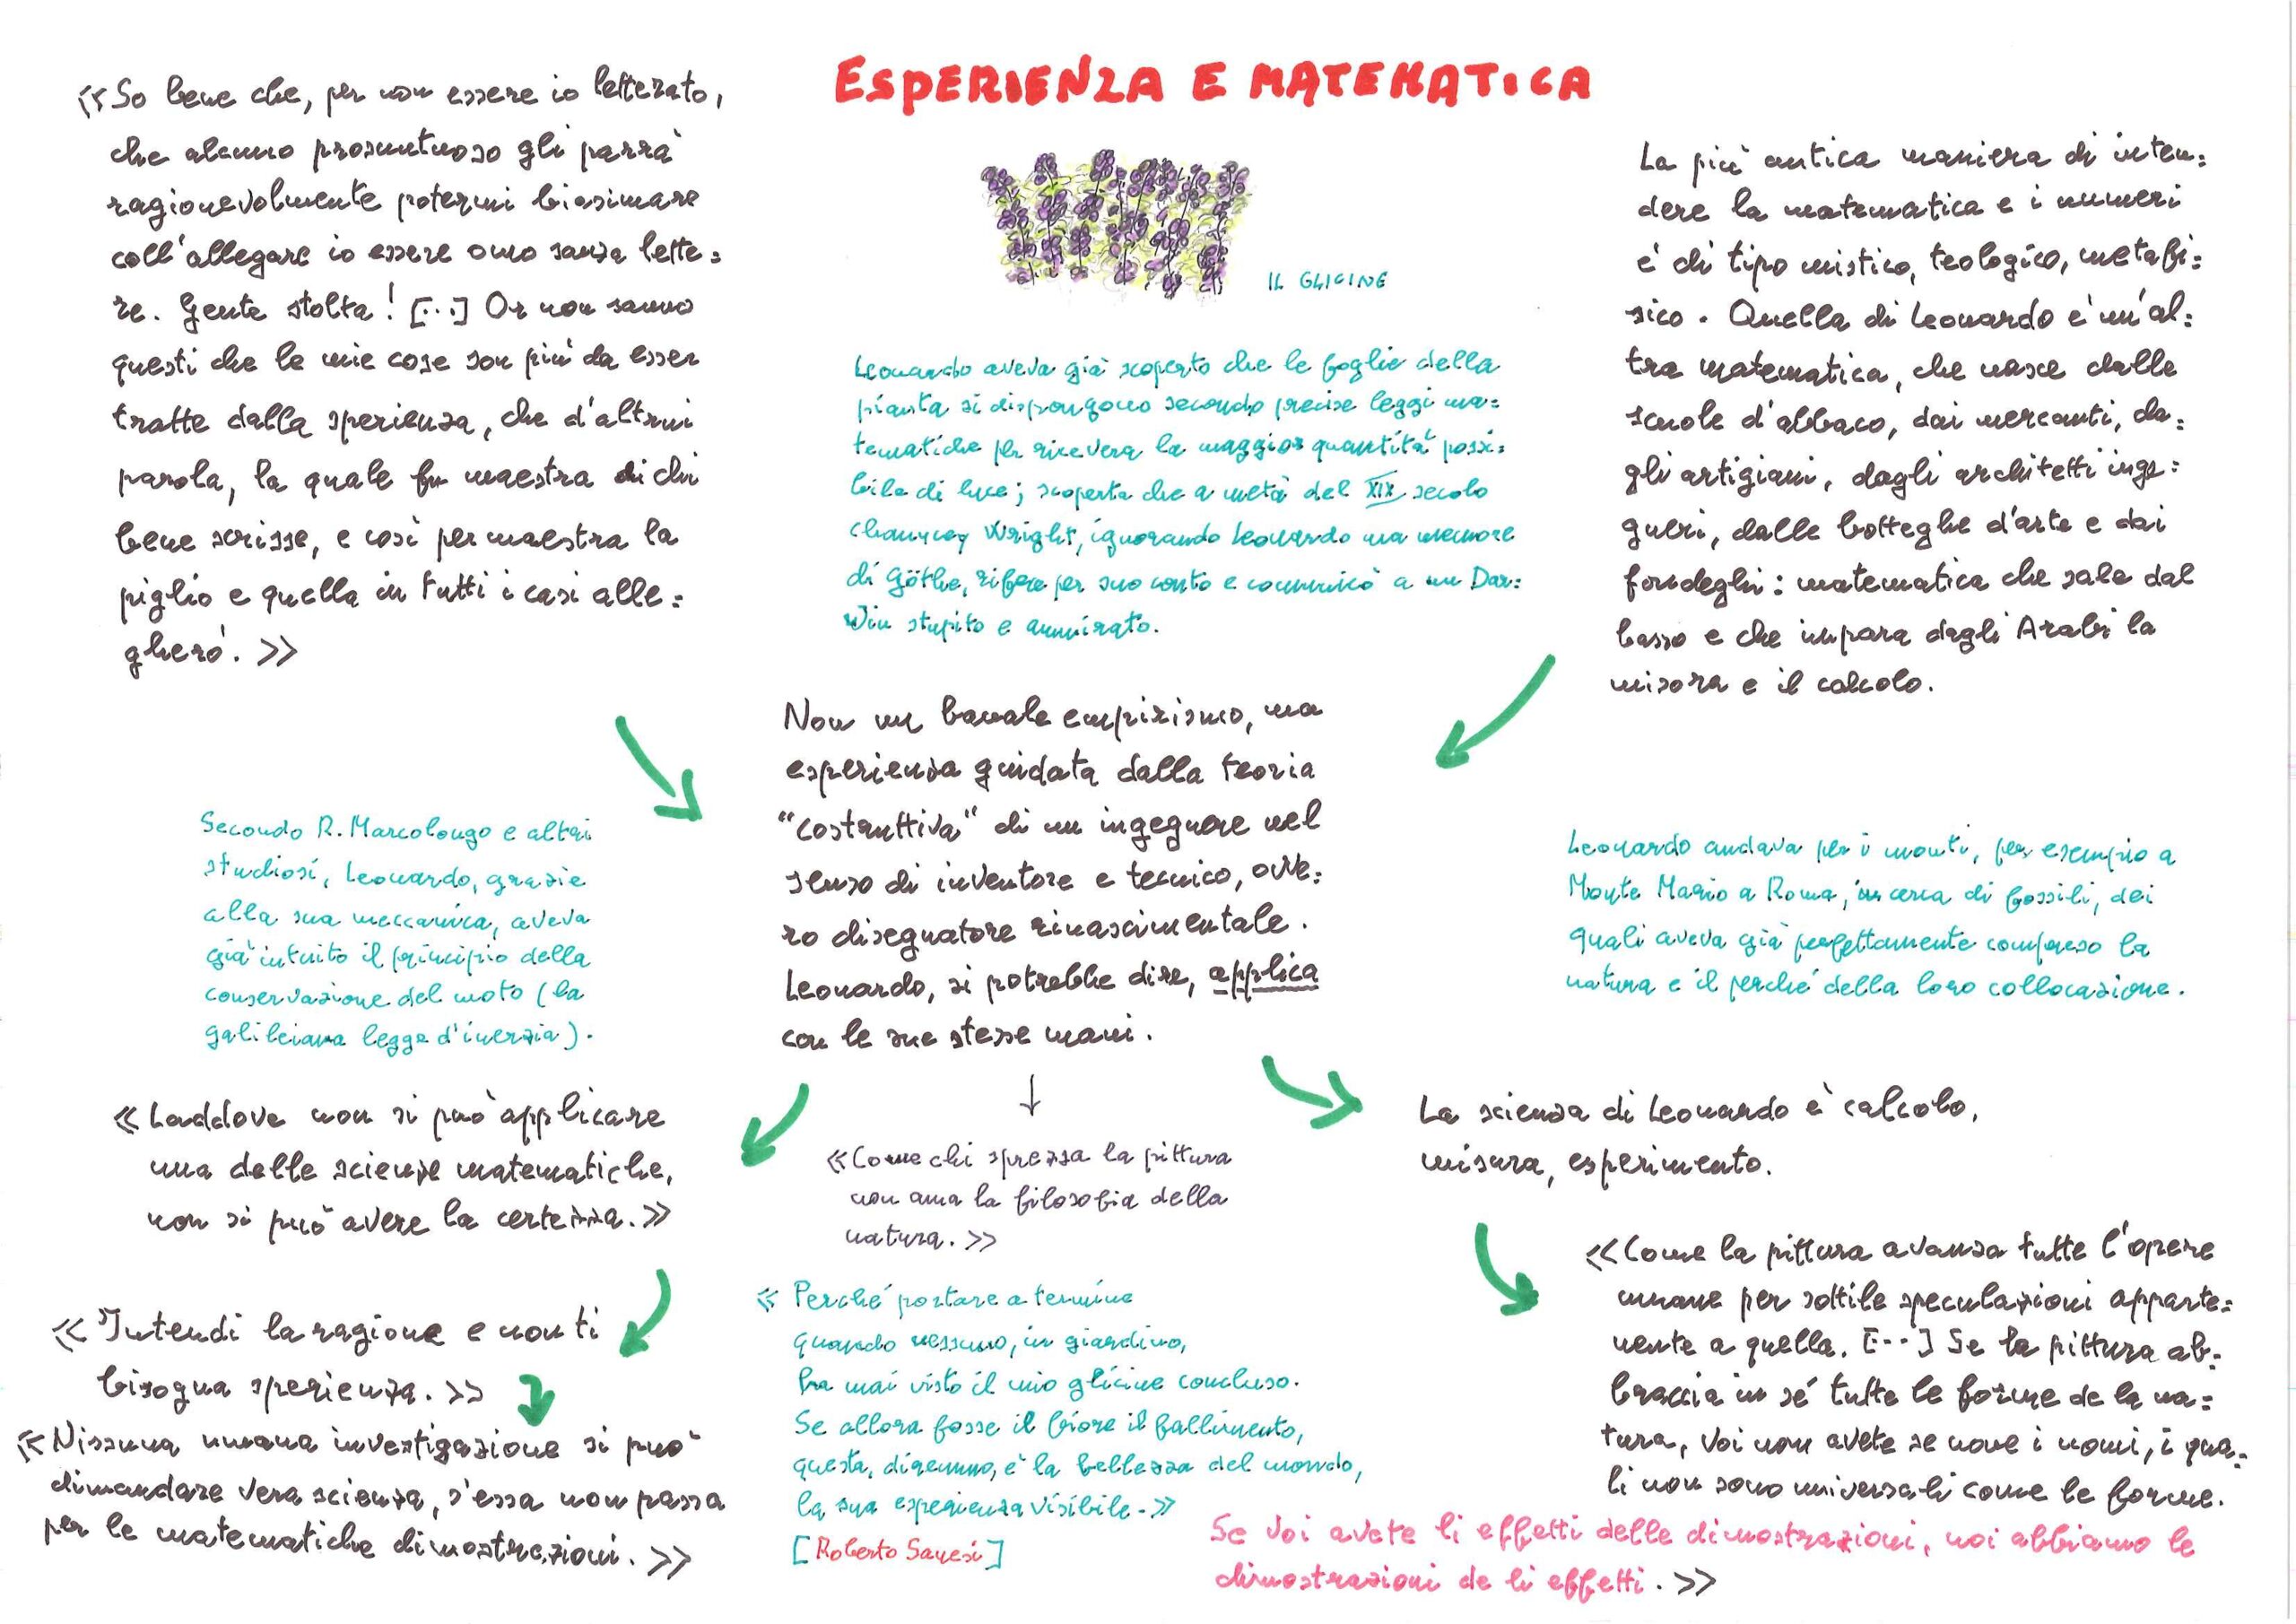 ESPERIENZA E MATEMATICA
«So bene che, per non essere io letterato,
che alcuno prosuntuoso gli parrà
ragionevolmente potermi biasimare
coll'allegare io essere omo sanza lette=
re. Gente stolta! [...] Or non sanno
questi che le mie cose son più da esser
tratte dalla sperienza, che d'altrui
parola, la quale fu maestra di chi
bene scrisse, e così per maestra la
piglio e quella in tutti i casi alle=
gherò. »
IL GLICINE
Leonardo aveva già scoperto che le foglie della
pianta si dispongono secondo precise leggi ma=
tematiche per ricevere la maggior quantità possi=
bile di luce; scoperta che a metà del XIX secolo
Chauncey Wright, ignorando Leonardo ma memore
di Göthe, rifece per suo conto e comunicò a un Dar=
win stupito e ammirato.
La più antica maniera di inten=
dere la matematica e i numeri
è di tipo mistico, teologico, metafi=
sico. Quella di Leonardo è un'al=
tra matematica, che nasce dalle
scuole d'abbaco, dai mercanti, da=
gli artigiani, dagli architetti inge=
gneri, dalle botteghe d'arte e dai
fondeghi: matematica che sale dal
basso e che impara dagli Arabi la
misora e il calcolo.
Non un banale empirismo, ma
esperienza guidata dalla teoria
"costruttiva" di un ingegnere nel
senso di inventore e tecnico, ovve=
ro disegnatore rinascimentale.
Leonardo, si potrebbe dire, applica
con le sue stesse mani.
Secondo R. Marcolongo e altri
studiosi, Leonardo, grazie
alla sua meccanica, aveva
già intuito il principio della
conservazione del moto (la
galileiana legge d'inerzia).
Leonardo andava per i monti, per esempio a
Monte Mario a Roma, in cerca di fossili, dei
quali aveva già perfettamente compreso la
natura e il perché della loro collocazione.
«Laddove non si può applicare
una delle scienze matematiche,
non si può avere la certezza.»
«Intendi la ragione e non ti
bisogna sperienza. »
«Nissuna umana investigazione si può
dimandare vera scienza, s'essa non passa
per le matematiche dimostrazioni. »
«Come chi sprezza la pittura
non ama la filosofia della
natura. »
« Perché portare a termine
quando nessuno, in giardino,
ha mai visto il mio glicine concluso.
Se allora fosse il fiore il fallimento,
questa, diremmo, è la bellezza del mondo,
la sua esperienza visibile.»
[Roberto Sanesi]
La scienza di Leonardo è calcolo,
misura, esperimento.
«Come la pittura avanza tutte l'opere
umane per sottile speculazioni apparte=
nente a quella. [...] Se la pittura ab=
braccia in sé tutte le forme de la na=
tura, voi non avete se none i nomi, i qua=
li non sono universali come le forme.
Se voi avete li effetti delle dimostrazioni, noi abbiamo le
dimostrazioni de li effetti. »